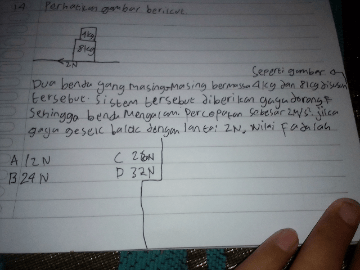 14 Perhatikan gambar berikut
4kg
8kg
2N
Seperti gambar
Dua benda yang masing-masing bermassa 4kg dan 8kg disusun
tersebut. Sistem tersebut diberikan gaya dorong F
Sehingga benda mengalami Percepatan sebesar 2m/s². jika
gaya gesek balok dengan lantai 2N. Nilai F adalah
A 12N C 28N
B 24N D 32N